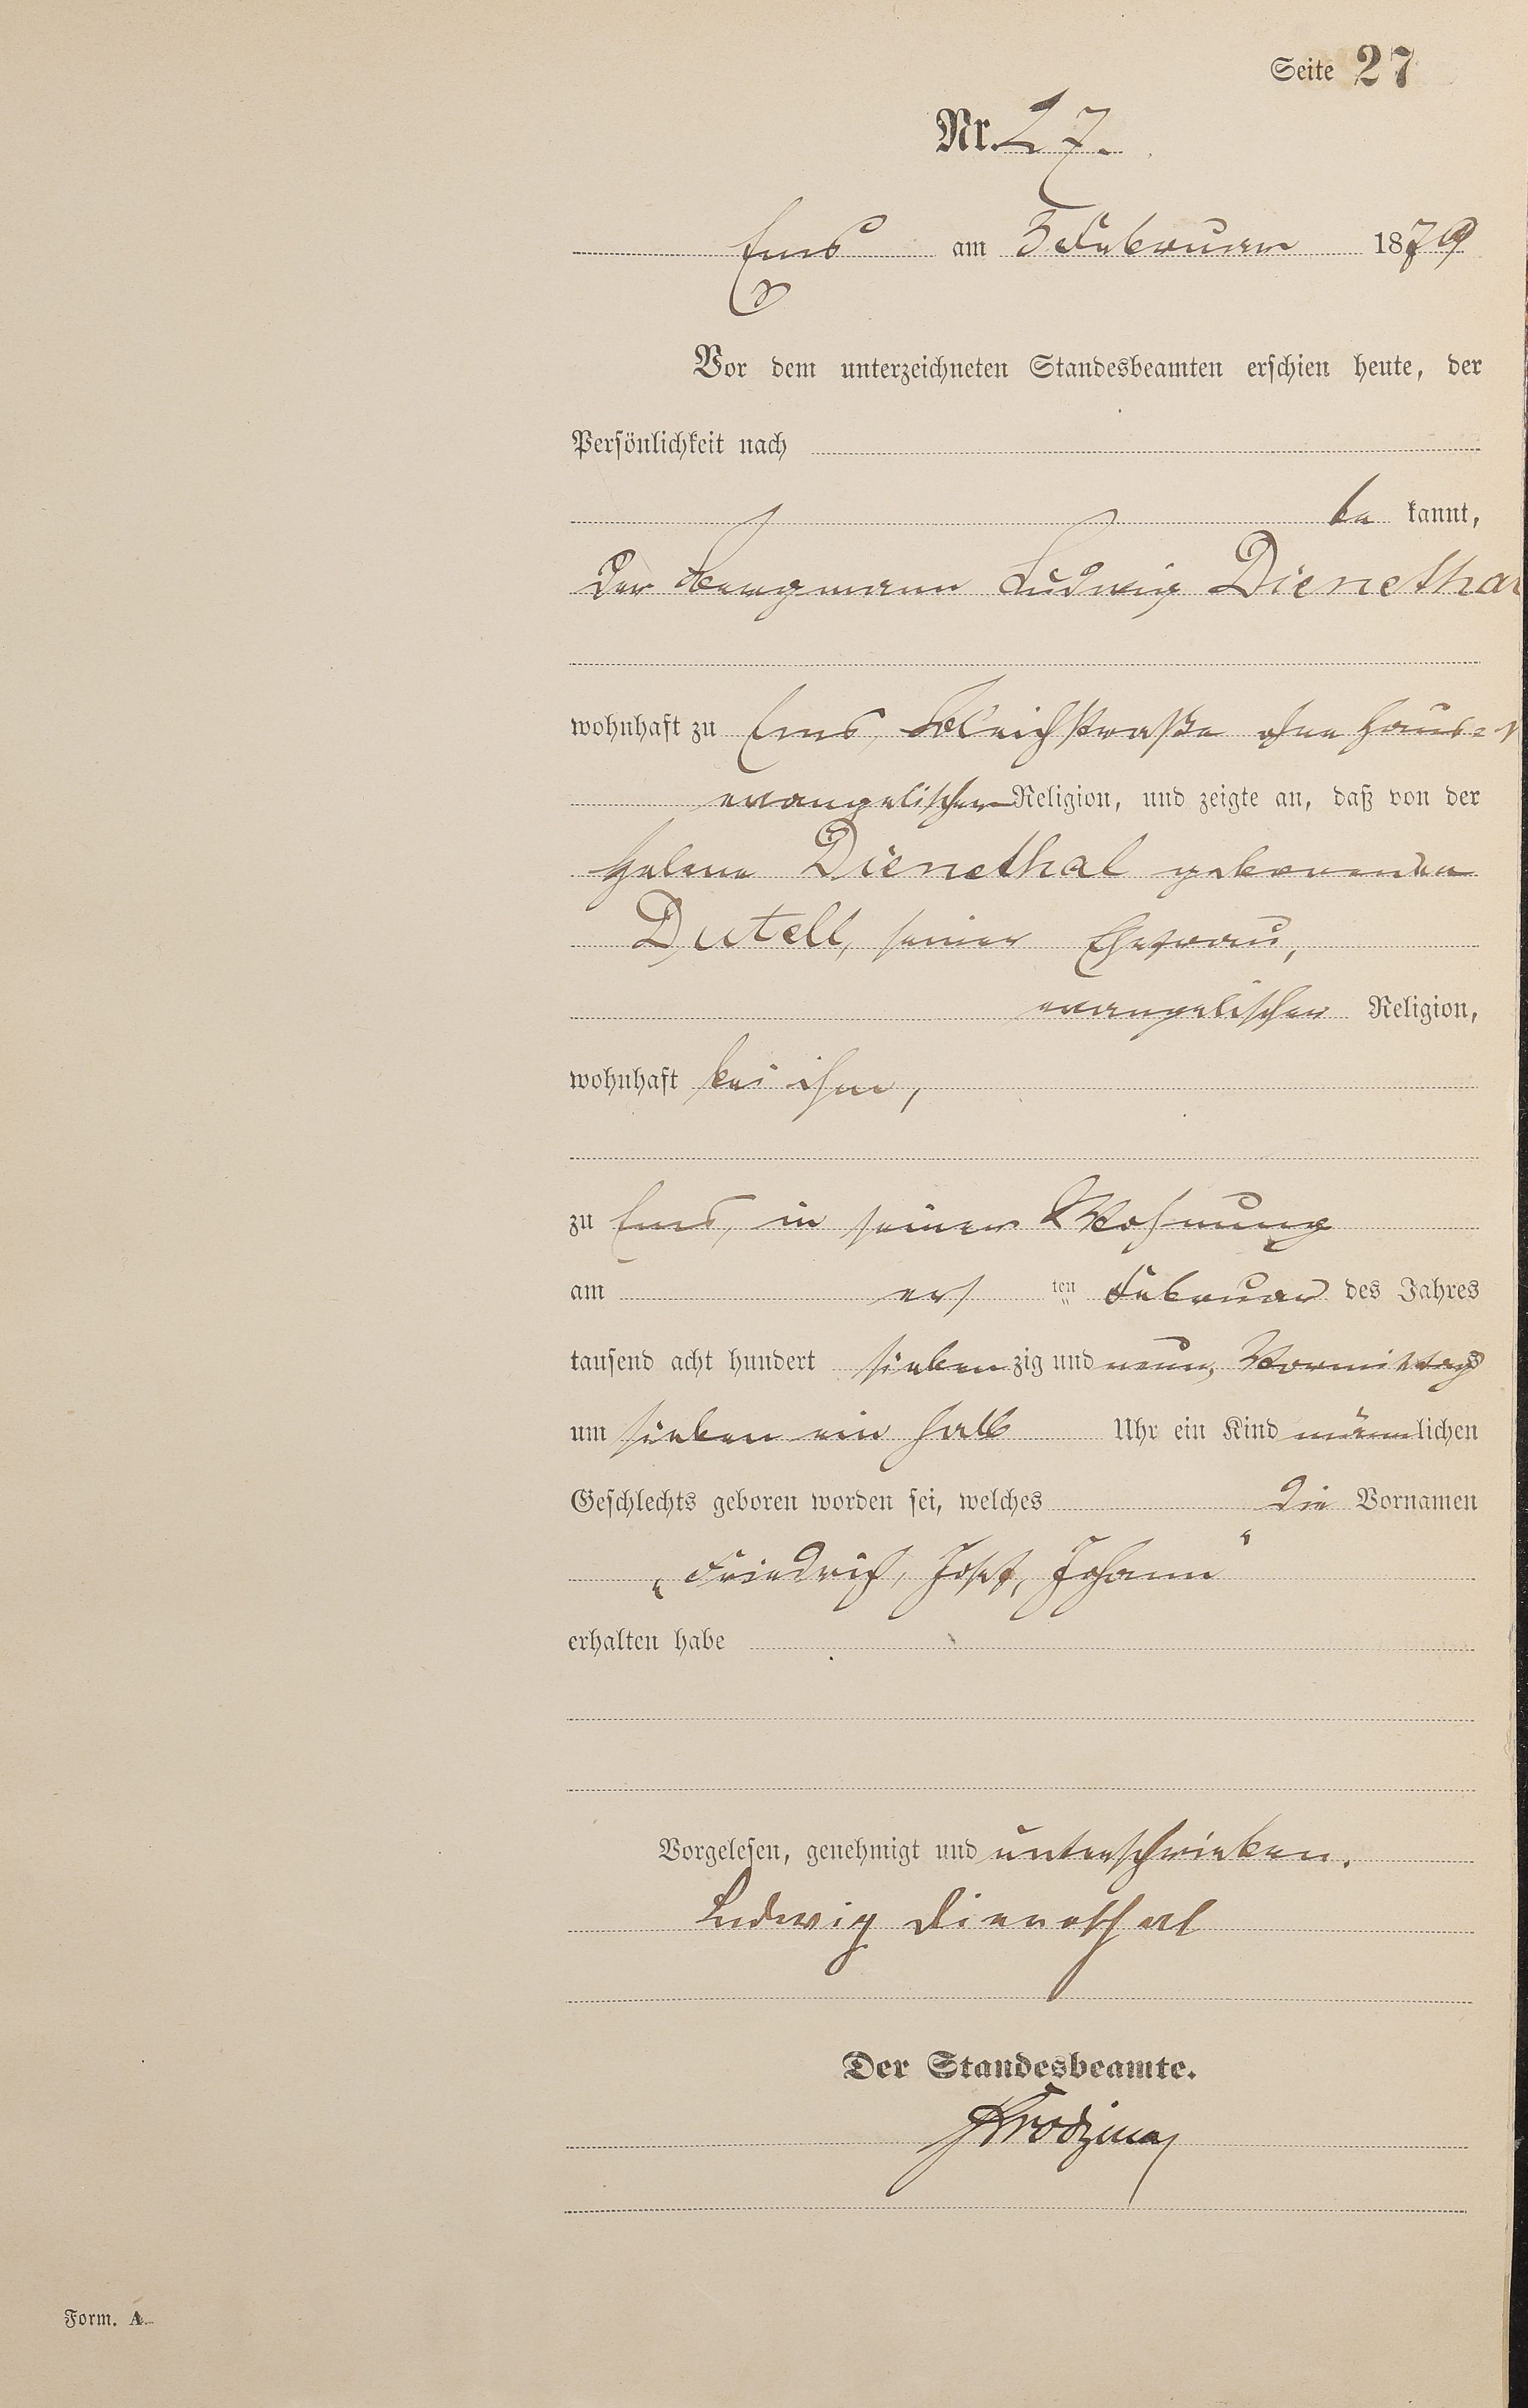 Seite 27
Nr. 27.
Ems am 3 Februar 1879
Vor dem unterzeichneten Standesbeamten erschien heute, der
Persönlichkeit nach
be kannt,
der Bergmann Ludwig Dienethal
wohnhaft zu Ems, Bleichstraße ohne Haus=N
evangelischer Religion, und zeigte an, daß von der
Helene Dienethal geborenen
Dutell, seiner Ehefrau,
evangelischer Religion,
wohnhaft bei ihm,
zu Ems, in seiner Wohnung
am ersten Februar des Jahres
tausend acht hundert siebenzig und neun, Vormittags
um sieben ein halb Uhr ein Kind männlichen
Geschlechts geboren worden sei, welches die Vornamen
„Friedrich, Josef, Johann“
erhalten habe
Vorgelesen, genehmigt und unterschrieben.
Ludwig Dienethal
Der Standesbeamte.
Form. A.